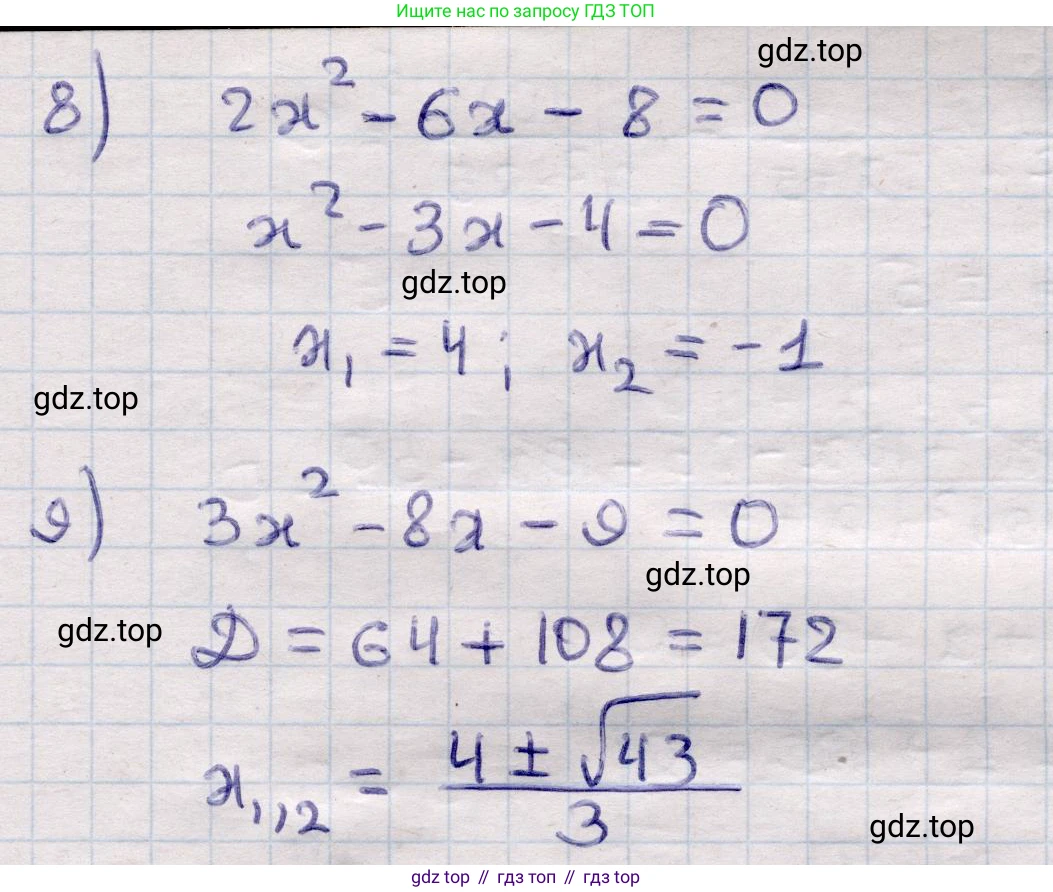 Ищите нас по запросу ГДЗ ТОП
gdz.top
8) 2x² - 6x - 8 = 0
x² - 3x - 4 = 0
gdz.top
x₁ = 4; x₂ = -1
gdz.top
9) 3x² - 8x - 9 = 0
gdz.top
gdz.top
D = 64 + 108 = 172
x₁,₂ = (4 ± √43)/3
gdz.top
gdz top // гдз топ // гдз top